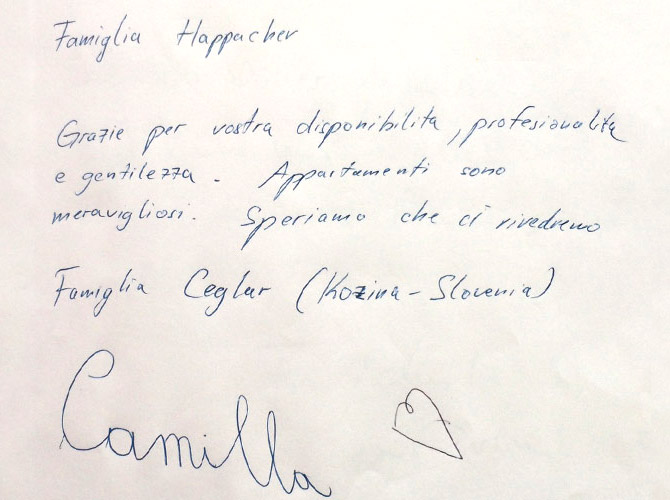 Famiglia Happacher
Grazie per vostra disponibilita, profesionalita
e gentilezza. Appartamenti sono
meravigliosi. Speriamo che ci rivedremo
Famiglia Ceglar (Kozina - Slovenia)
Camilla